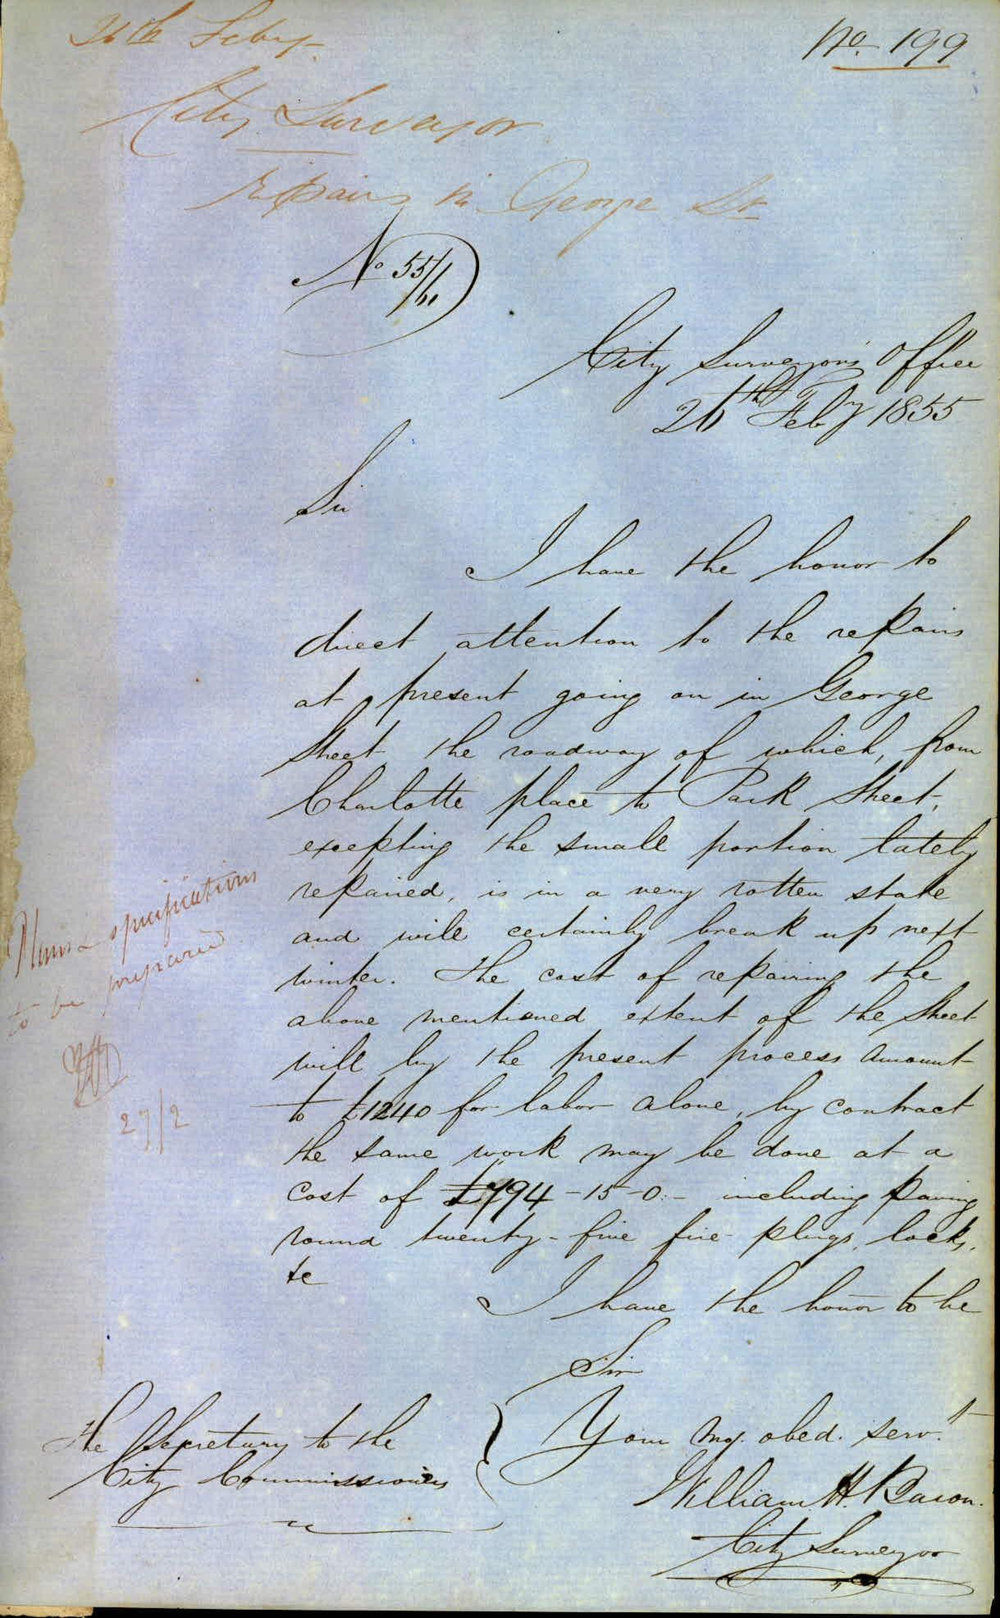 26th Feby.
No. 199
City Surveyor
repairs in George St
No 55/61
City Surveyor's Office
26th Feby 1855
Sir
I have the honor to
direct attention to the repairs
at present going on in George
Street the roadway of which, from
Charlotte place to Park Street,
excepting the small portion lately
repaired, is in a very rotten state
and will certainly break up next
winter. The cost of repairing the
above mentioned extent of the Street
will by the present process amount
to £1240 for labor alone, by contract
the same work may be done at a
cost of £794-15-0.- including paving
round twenty-five fire plugs, locks,
&c
I have the honor to be
Sir
Your my. obed. servt.
William H. Bacon.
City Surveyor
The Secretary to the
City Commissioners
Plans & specifications
to be prepared
27/2